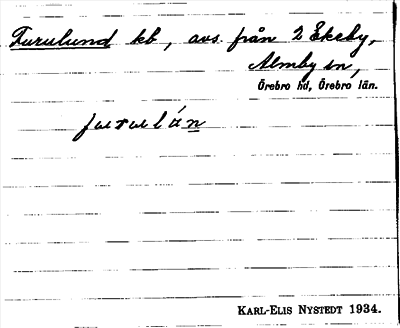 Furulund kb, avs. från 2 Ekeby,
Almby sn,
Örebro hd, Örebro län.
furulún
KARL-ELIS NYSTEDT 1934.